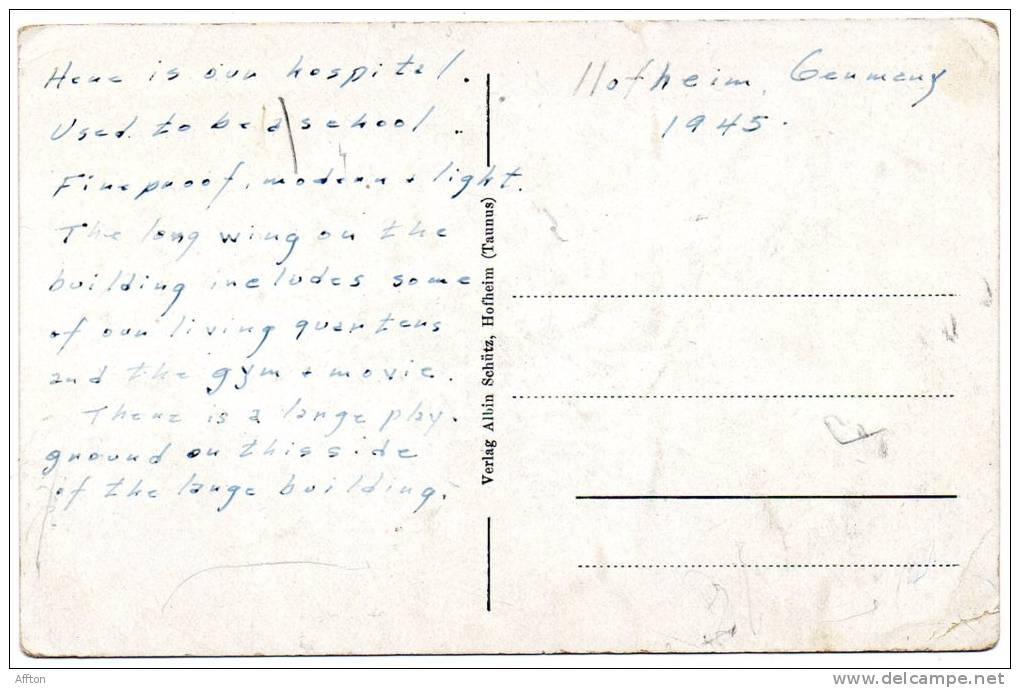 Here is our hospital.
Used to be a school.
Fireproof, modern + light.
The long wing on the
building includes some
of our living quarters
and the gym + movie.
There is a large play.
ground on this side
of the large building.
Verlag Albin Schütz, Hofheim (Taunus)
Hofheim, Germany
1945.
Affton
delcampe.net